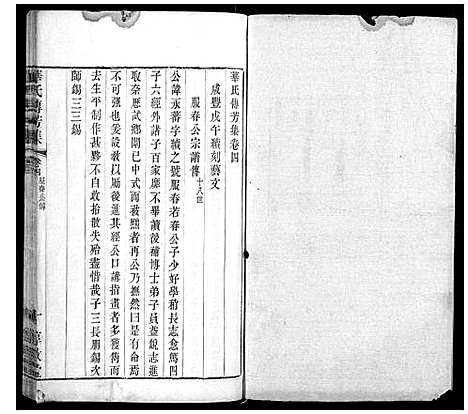 華氏傳芳集卷四
咸豐戊午續刻藝文
服春公宗譜傳十八世
公諱永蕃字績之服春若春公子少好學稍長志愈篤四
子六經外諸子百家靡不畢讀後補博士弟子員益銳志進
取奈歷試鄉闈已中式而被黜者再公乃撫然曰是有命焉
不可強也爰設教以屬後進其經公口講指畫者多獲雋而
去生平制作甚夥不自收拾散失殆盡惜哉子三長朋錫次
師錫三三錫
華氏傳芳集
卷四
服春公傳
一